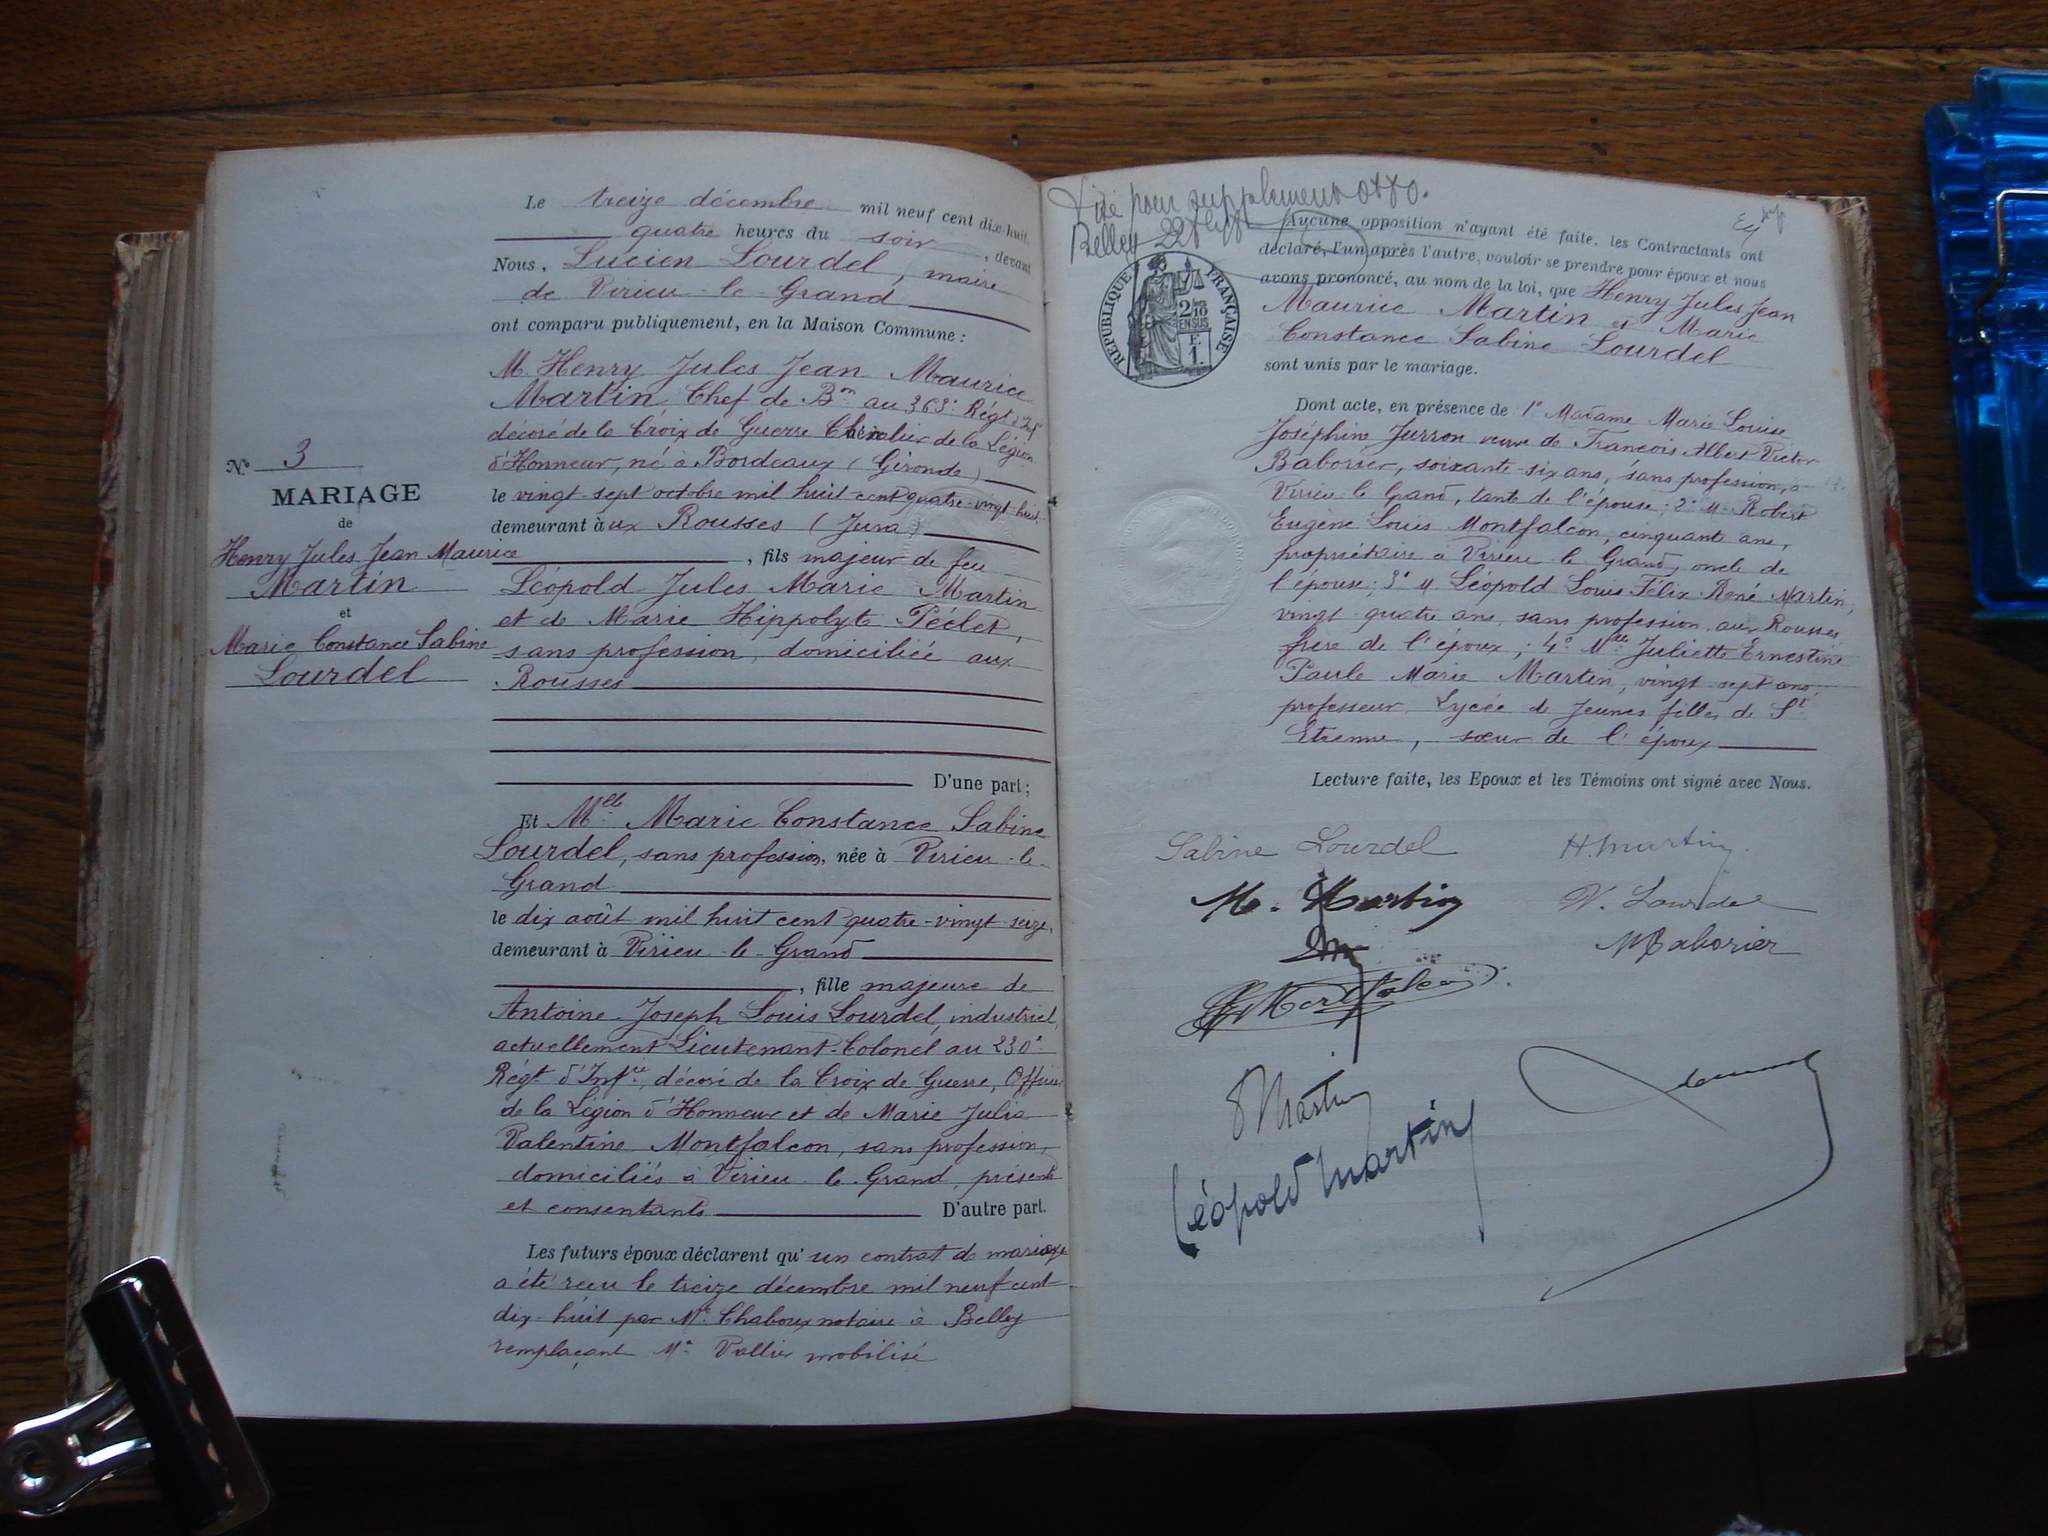 Le treize décembre mil neuf cent dix-huit,
quatre heures du soir, devant
Nous, Lucien Lourdel, maire
de Virieu-le-Grand
ont comparu publiquement, en la Maison Commune :
M. Henry Jules Jean Maurice
Martin Chef de Bon au 363e Régt d'Infie
décoré de la Croix de Guerre Chevalier de la Légion
d'Honneur, né à Bordeaux (Gironde)
le vingt-sept octobre mil huit cent quatre-vingt-huit
demeurant aux Rousses (Jura)
, fils majeur de feu
Léopold Jules Marie Martin
et de Marie Hippolyte Péclet,
sans profession, domiciliée aux
Rousses
D'une part ;
Et Melle Marie Constance Sabine
Lourdel, sans profession, née à Virieu-le-
Grand
le dix août mil huit cent quatre-vingt-seize,
demeurant à Virieu-le-Grand
, fille majeure de
Antoine-Joseph Louis Lourdel, industriel,
actuellement Lieutenant-Colonel au 230e
Régt d'Infie, décoré de la Croix de Guerre, Officier
de la Légion d'Honneur et de Marie Julia
Valentine Montfalcon, sans profession,
domiciliés à Virieu-le-Grand, présents
et consentants D'autre part.
Les futurs époux déclarent qu'un contrat de mariage
a été reçu le treize décembre mil neuf cent
dix-huit par Me Chaboux notaire à Belley
remplaçant Me Vallier mobilisé
No 3
MARIAGE
de
Henry Jules Jean Maurice
Martin
et
Marie Constance Sabine
Lourdel
Visé pour supplément
Belley
RÉPUBLIQUE FRANÇAISE
2/10
EN SUS
F.
1.
Aucune opposition n'ayant été faite, les Contractants ont
déclaré, l'un après l'autre, vouloir se prendre pour époux et nous
avons prononcé, au nom de la loi, que Henry Jules Jean
Maurice Martin et Marie
Constance Sabine Lourdel
sont unis par le mariage.
Dont acte, en présence de 1° Madame Marie Louise
Joséphine Jurron veuve de François Albert Victor
Baborier, soixante-six ans, sans profession, à
Virieu-le-Grand, tante de l'épouse; 2° M. Robert
Eugène Louis Montfalcon, cinquante ans,
propriétaire à Virieu le Grand, oncle de
l'épouse; 3° M Léopold Louis Félix René Martin,
vingt-quatre ans, sans profession aux Rousses,
frère de l'époux; 4° Melle Juliette Ernestine
Paule Marie Martin, vingt-sept ans,
professeur Lycée de Jeunes filles de St
Etienne, sœur de l'époux
Lecture faite, les Epoux et les Témoins ont signé avec Nous.
Sabine Lourdel H. Martin
M. Martin V. Lourdel
M Baborier
Montfalcon
J Martin
Léopold Martin